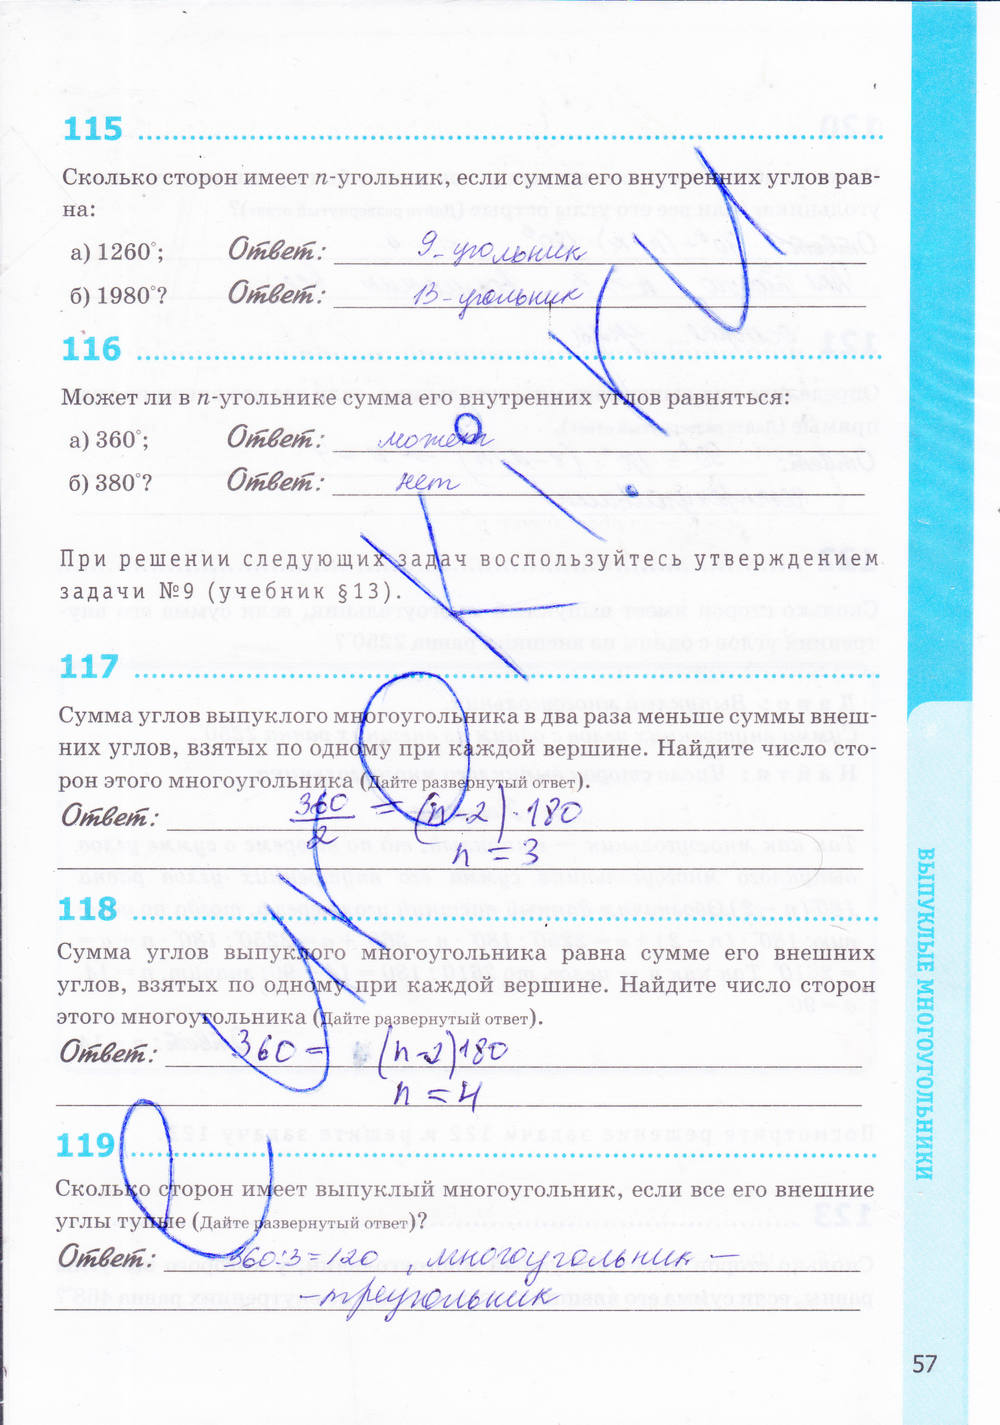 115
Сколько сторон имеет n-угольник, если сумма его внутренних углов рав-
на:
а) 1260°; Ответ: 9-угольник
б) 1980°? Ответ: 13-угольник
116
Может ли в n-угольнике сумма его внутренних углов равняться:
а) 360°; Ответ: может
б) 380°? Ответ: нет
При решении следующих задач воспользуйтесь утверждением
задачи №9 (учебник §13).
117
Сумма углов выпуклого многоугольника в два раза меньше суммы внеш-
них углов, взятых по одному при каждой вершине. Найдите число сто-
рон этого многоугольника (Дайте развернутый ответ).
Ответ: 360/2 = (n-2)·180
n = 3
118
Сумма углов выпуклого многоугольника равна сумме его внешних
углов, взятых по одному при каждой вершине. Найдите число сторон
этого многоугольника (Дайте развернутый ответ).
Ответ: 360 = (n-2)180
n = 4
119
Сколько сторон имеет выпуклый многоугольник, если все его внешние
углы тупые (Дайте развернутый ответ)?
Ответ: 360:3=120, многоугольник –
– треугольник
ВЫПУКЛЫЕ МНОГОУГОЛЬНИКИ
57